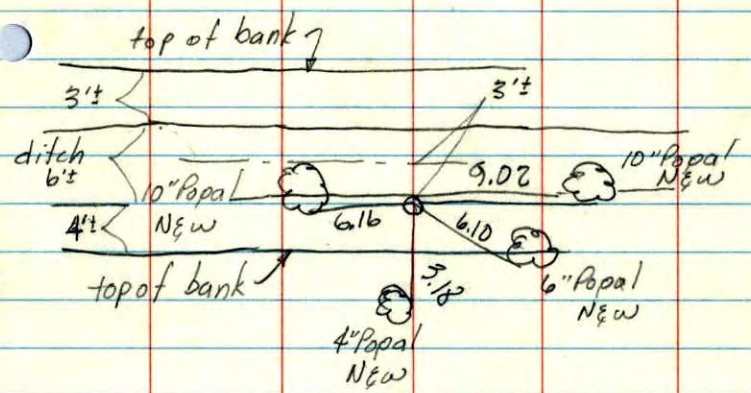 top of bank
3'±
3'±
ditch
6'±
9.02
10"Popal
N&W
10"Popal
N&W
4'±
6.16
6.10
top of bank
3.18
6"Popal
N&W
4"Popal
N&W